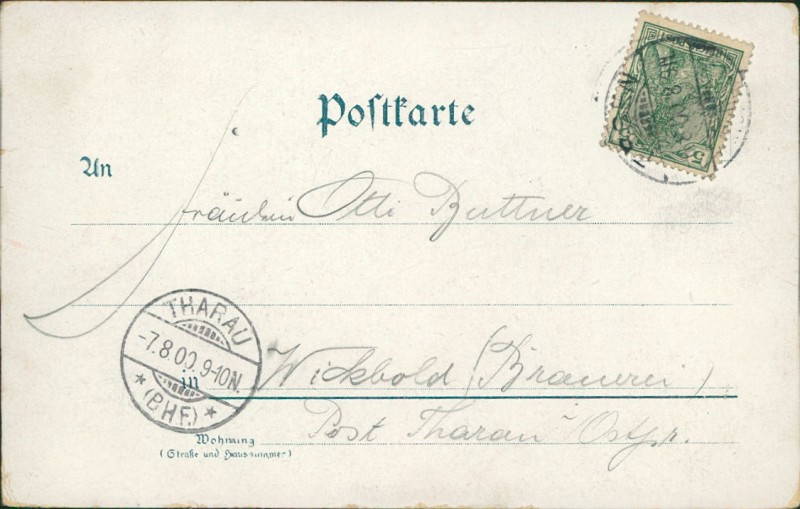 Postkarte
An
Fräulein Otti Buttner
THARAU
-7.8.00.9-10N.
* (BHF.) *
in Wickbold (Brauerei)
Wohnung
(Straße und Hausnummer)
Post Tharau Ostpr.
5